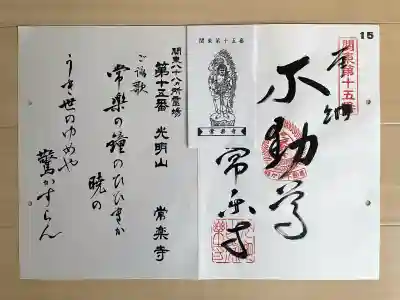 15
関東第十五番
奉納
不動尊
常楽寺
関東第十五番
常楽寺
関東八十八ヵ所霊場
第十五番 光明山 常楽寺
ご詠歌
常樂の鐘のひびきか
暁の
うき世のゆめや
驚かすらん